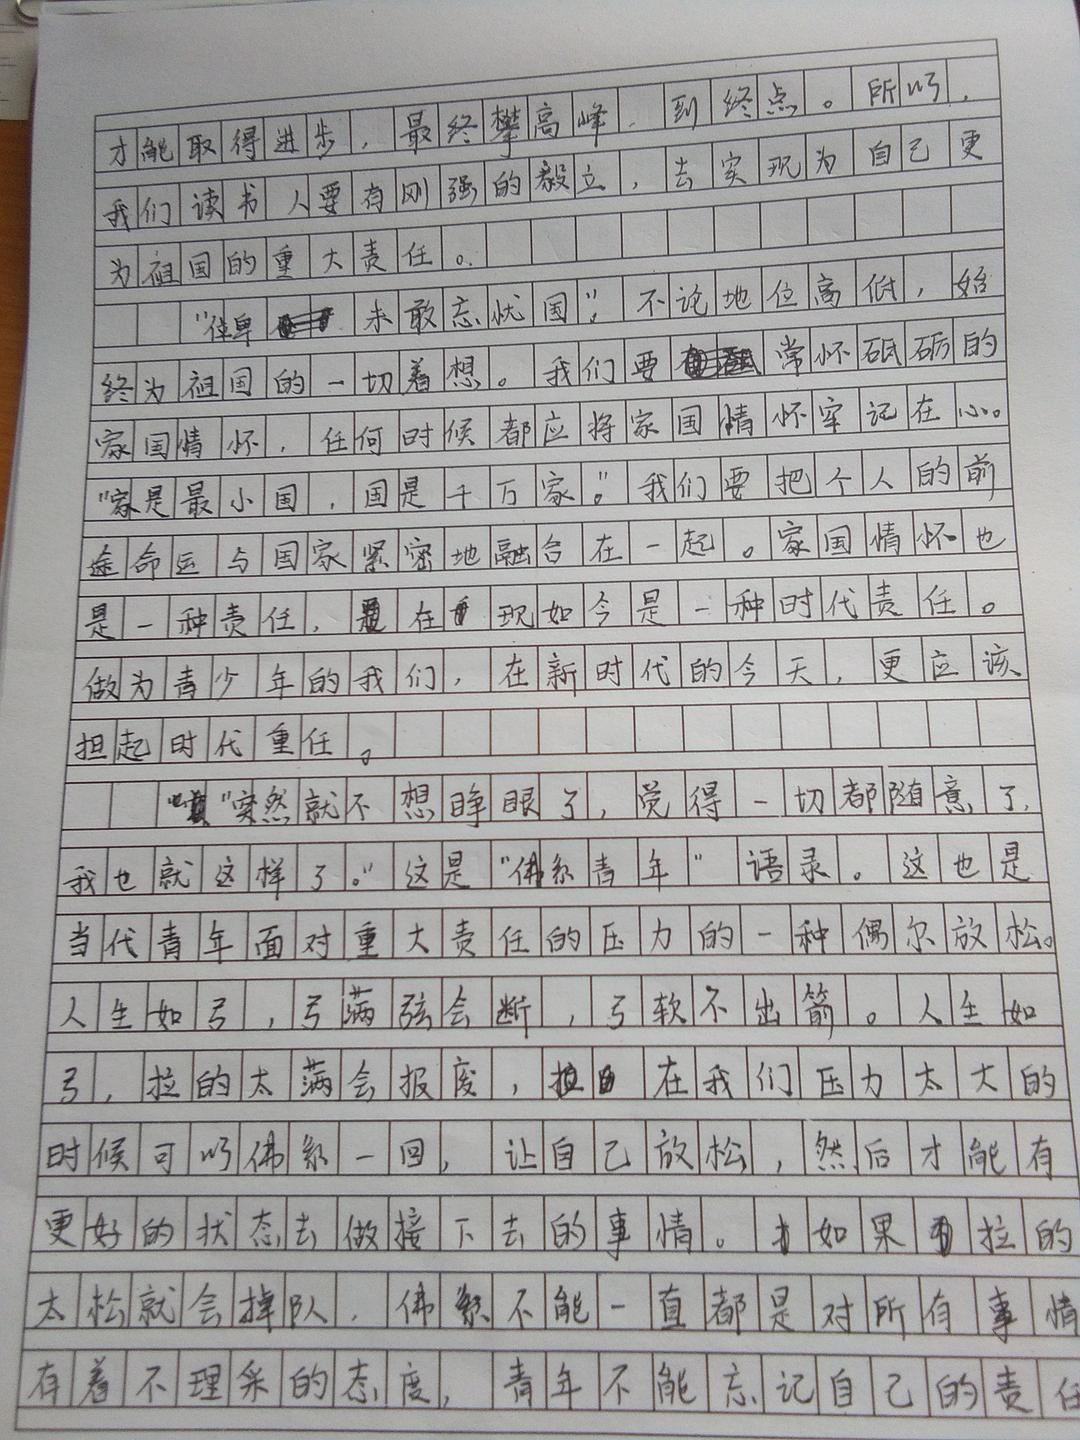 才能取得进步，最终攀高峰，到终点。所以，
我们读书人要有刚强的毅立，去实现为自己更
为祖国的重大责任。
“位卑未敢忘忧国”，不论地位高低，始
终为祖国的一切着想。我们要常怀砥砺的
家国情怀，任何时候都应将家国情怀牢记在心。
“家是最小国，国是千万家。”我们要把个人的前
途命运与国家紧密地融合在一起。家国情怀也
是一种责任，在现如今是一种时代责任。
做为青少年的我们，在新时代的今天，更应该
担起时代重任。
“突然就不想睁眼了，觉得一切都随意了，
我也就这样了。”这是“佛系青年”语录。这也是
当代青年面对重大责任的压力的一种偶尔放松。
人生如弓，弓满弦会断，弓软不出箭。人生如
弓，拉的太满会报废，在我们压力太大的
时候可以佛系一回，让自己放松，然后才能有
更好的状态去做接下去的事情。如果拉的
太松就会掉队，佛系不能一直都是对所有事情
有着不理采的态度，青年不能忘记自己的责任